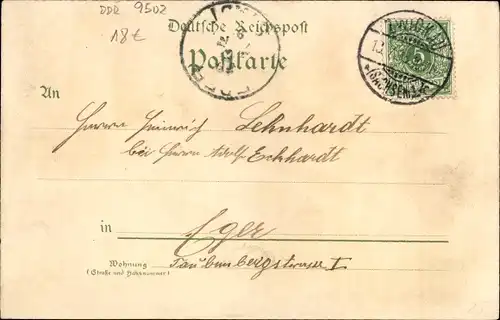 DDR 9502
18€
Deutsche Reichspost
Postkarte
An
Herrn Heinrich Lehnhardt
bei Herrn Adolf Eckhardt
in Eger
Wohnung
(Straße und Hausnummer)
5